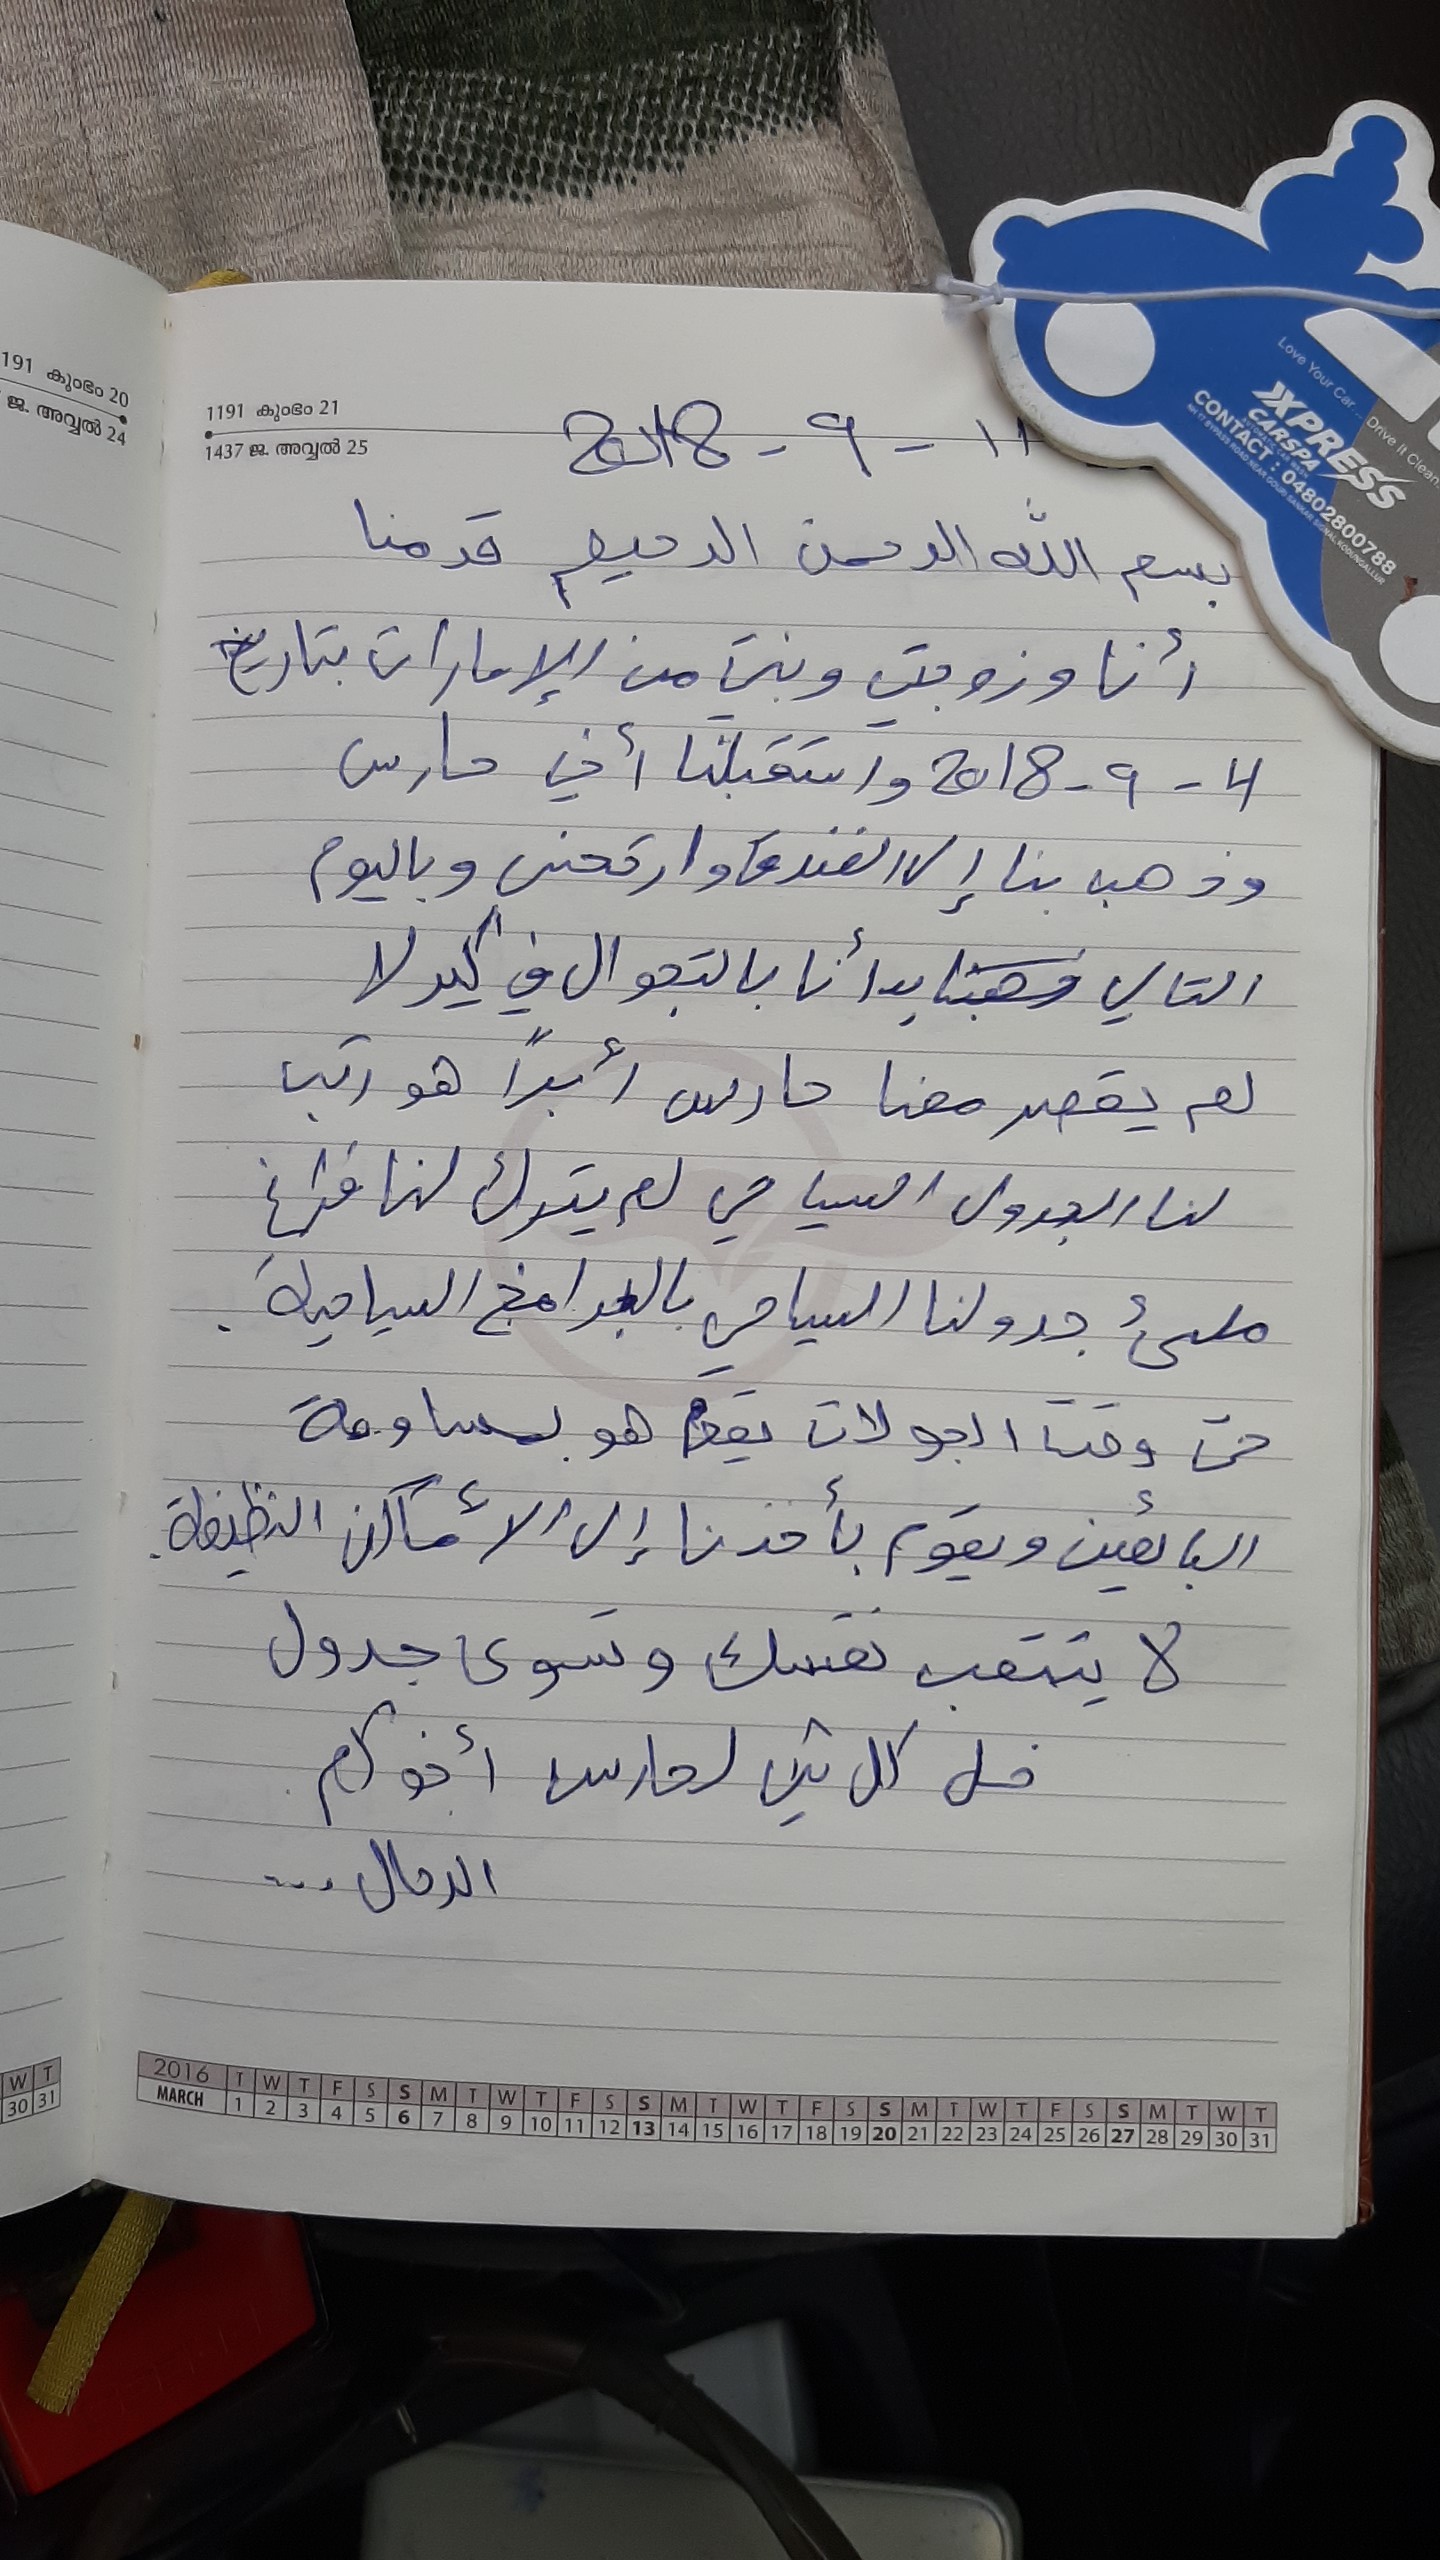 191 കുംഭം 20
ജ. അവ്വൽ 24
1191 കുംഭം 21
1437 ജ. അവ്വൽ 25
2018 - 9 - 11
بسم الله الرحمن الرحيم قدمنا
أنا وزوجتي وبنتي من الإمارات بتاريخ
4 - 9 - 2018 واستقبلنا أخي حارس
وذهب بنا إلى الفندق وارتحنى وباليوم
التالي ذهبنا بدأنا بالتجوال في كيرلا
لم يقصر معنا حارس أبدًا هو رتب
لنا الجدول السياحي لم يترك لنا فراغ
ملئ جدولنا السياحي بالبرامج السياحية.
حتى وقت الجولات يقوم هو بمساومة
البائعين ويقوم بأخذنا إلى الأماكن النظيفة.
لا تتعب نفسك وتسوى جدول
خل كل شي لحارس أخوكم
الرحال ...
Love Your Car...
Drive It Clean
XPRESS
CARSPA
AUTOMATIC CAR WASH
CONTACT : 04802800788
W T
30 31
2016 T W T F S S M T W T F S S M T W T F S S M T W T F S S M T W T
MARCH 1 2 3 4 5 6 7 8 9 10 11 12 13 14 15 16 17 18 19 20 21 22 23 24 25 26 27 28 29 30 31